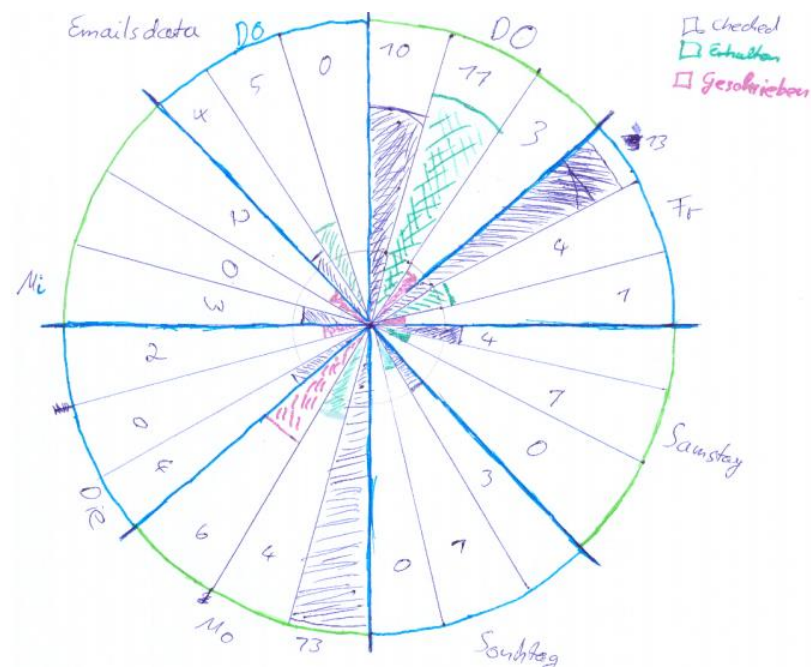 Emailsdata
DO
DO
Checked
Erhalten
Geschrieben
10
11
3
13
Fr
4
1
4
1
0
Samstag
3
1
0
Sonntag
13
4
6
Mo
4
0
2
Die
3
0
2
Mi
4
5
0